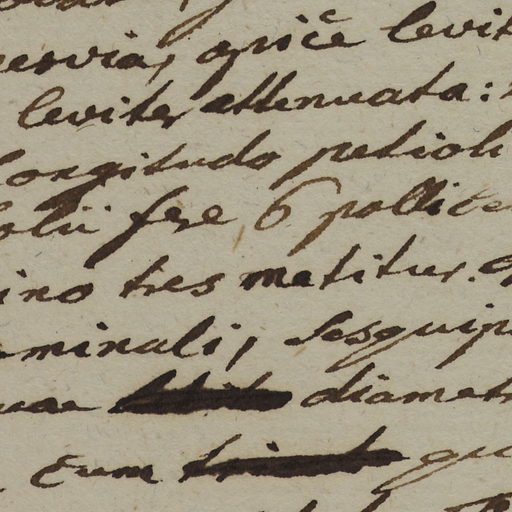 nervia, apice levit
leviter attenuata:
longitudo petioli
folii fere 6 pollice
ino tres metitur.
minali, sesquip
uae diametr
Cum qu